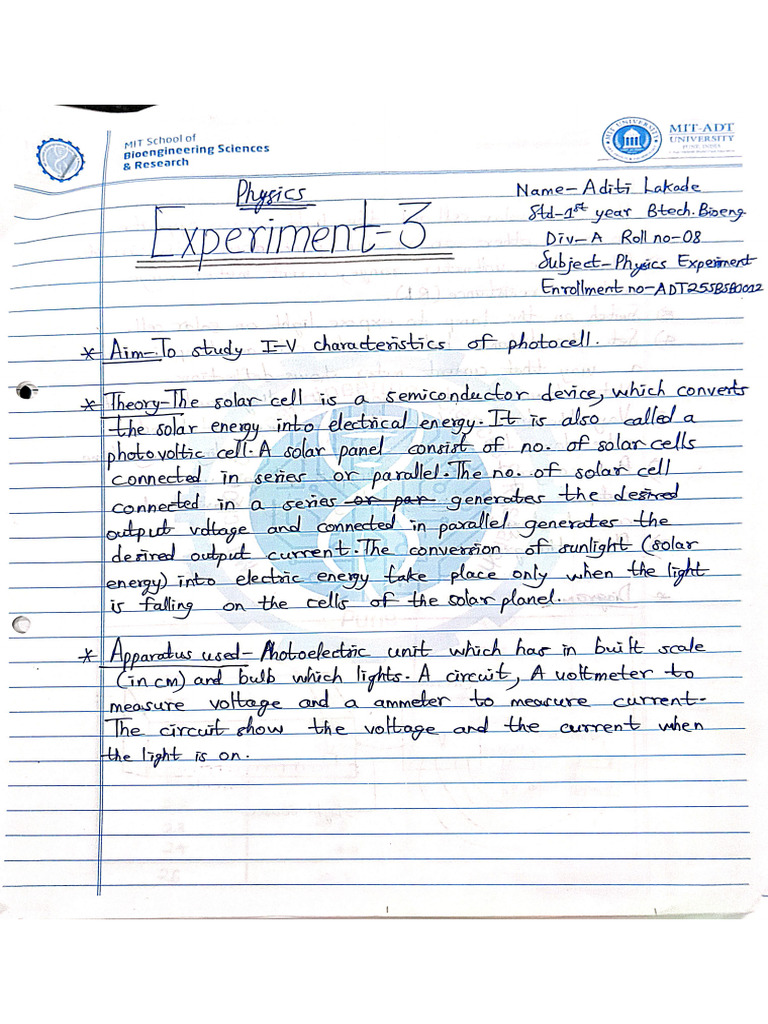 MIT School of
Bioengineering Sciences
& Research
MIT-ADT
UNIVERSITY
PUNE, INDIA
Physics
Experiment-3
Name-Aditi Lakade
Std-1st year Btech.Bioeng
Div-A Roll no-08
Subject-Physics Experiment
Enrollment no-
* Aim-To study I-V characteristics of photocell.
* Theory-The solar cell is a semiconductor device, which converts
the solar energy into electrical energy. It is also called a
photovoltic cell. A solar panel consist of no. of solar cells
connected in series or parallel. The no. of solar cell
connected in a series or par generates the desired
output voltage and connected in parallel generates the
desired output current. The conversion of sunlight (solar
energy) into electric energy take place only when the light
is falling on the cells of the solar planel.
* Apparatus used- Photoelectric unit which has in built scale
(in cm) and bulb which lights. A circuit, A voltmeter to
measure voltage and a ammeter to measure current.
The circuit show the voltage and the current when
the light is on.